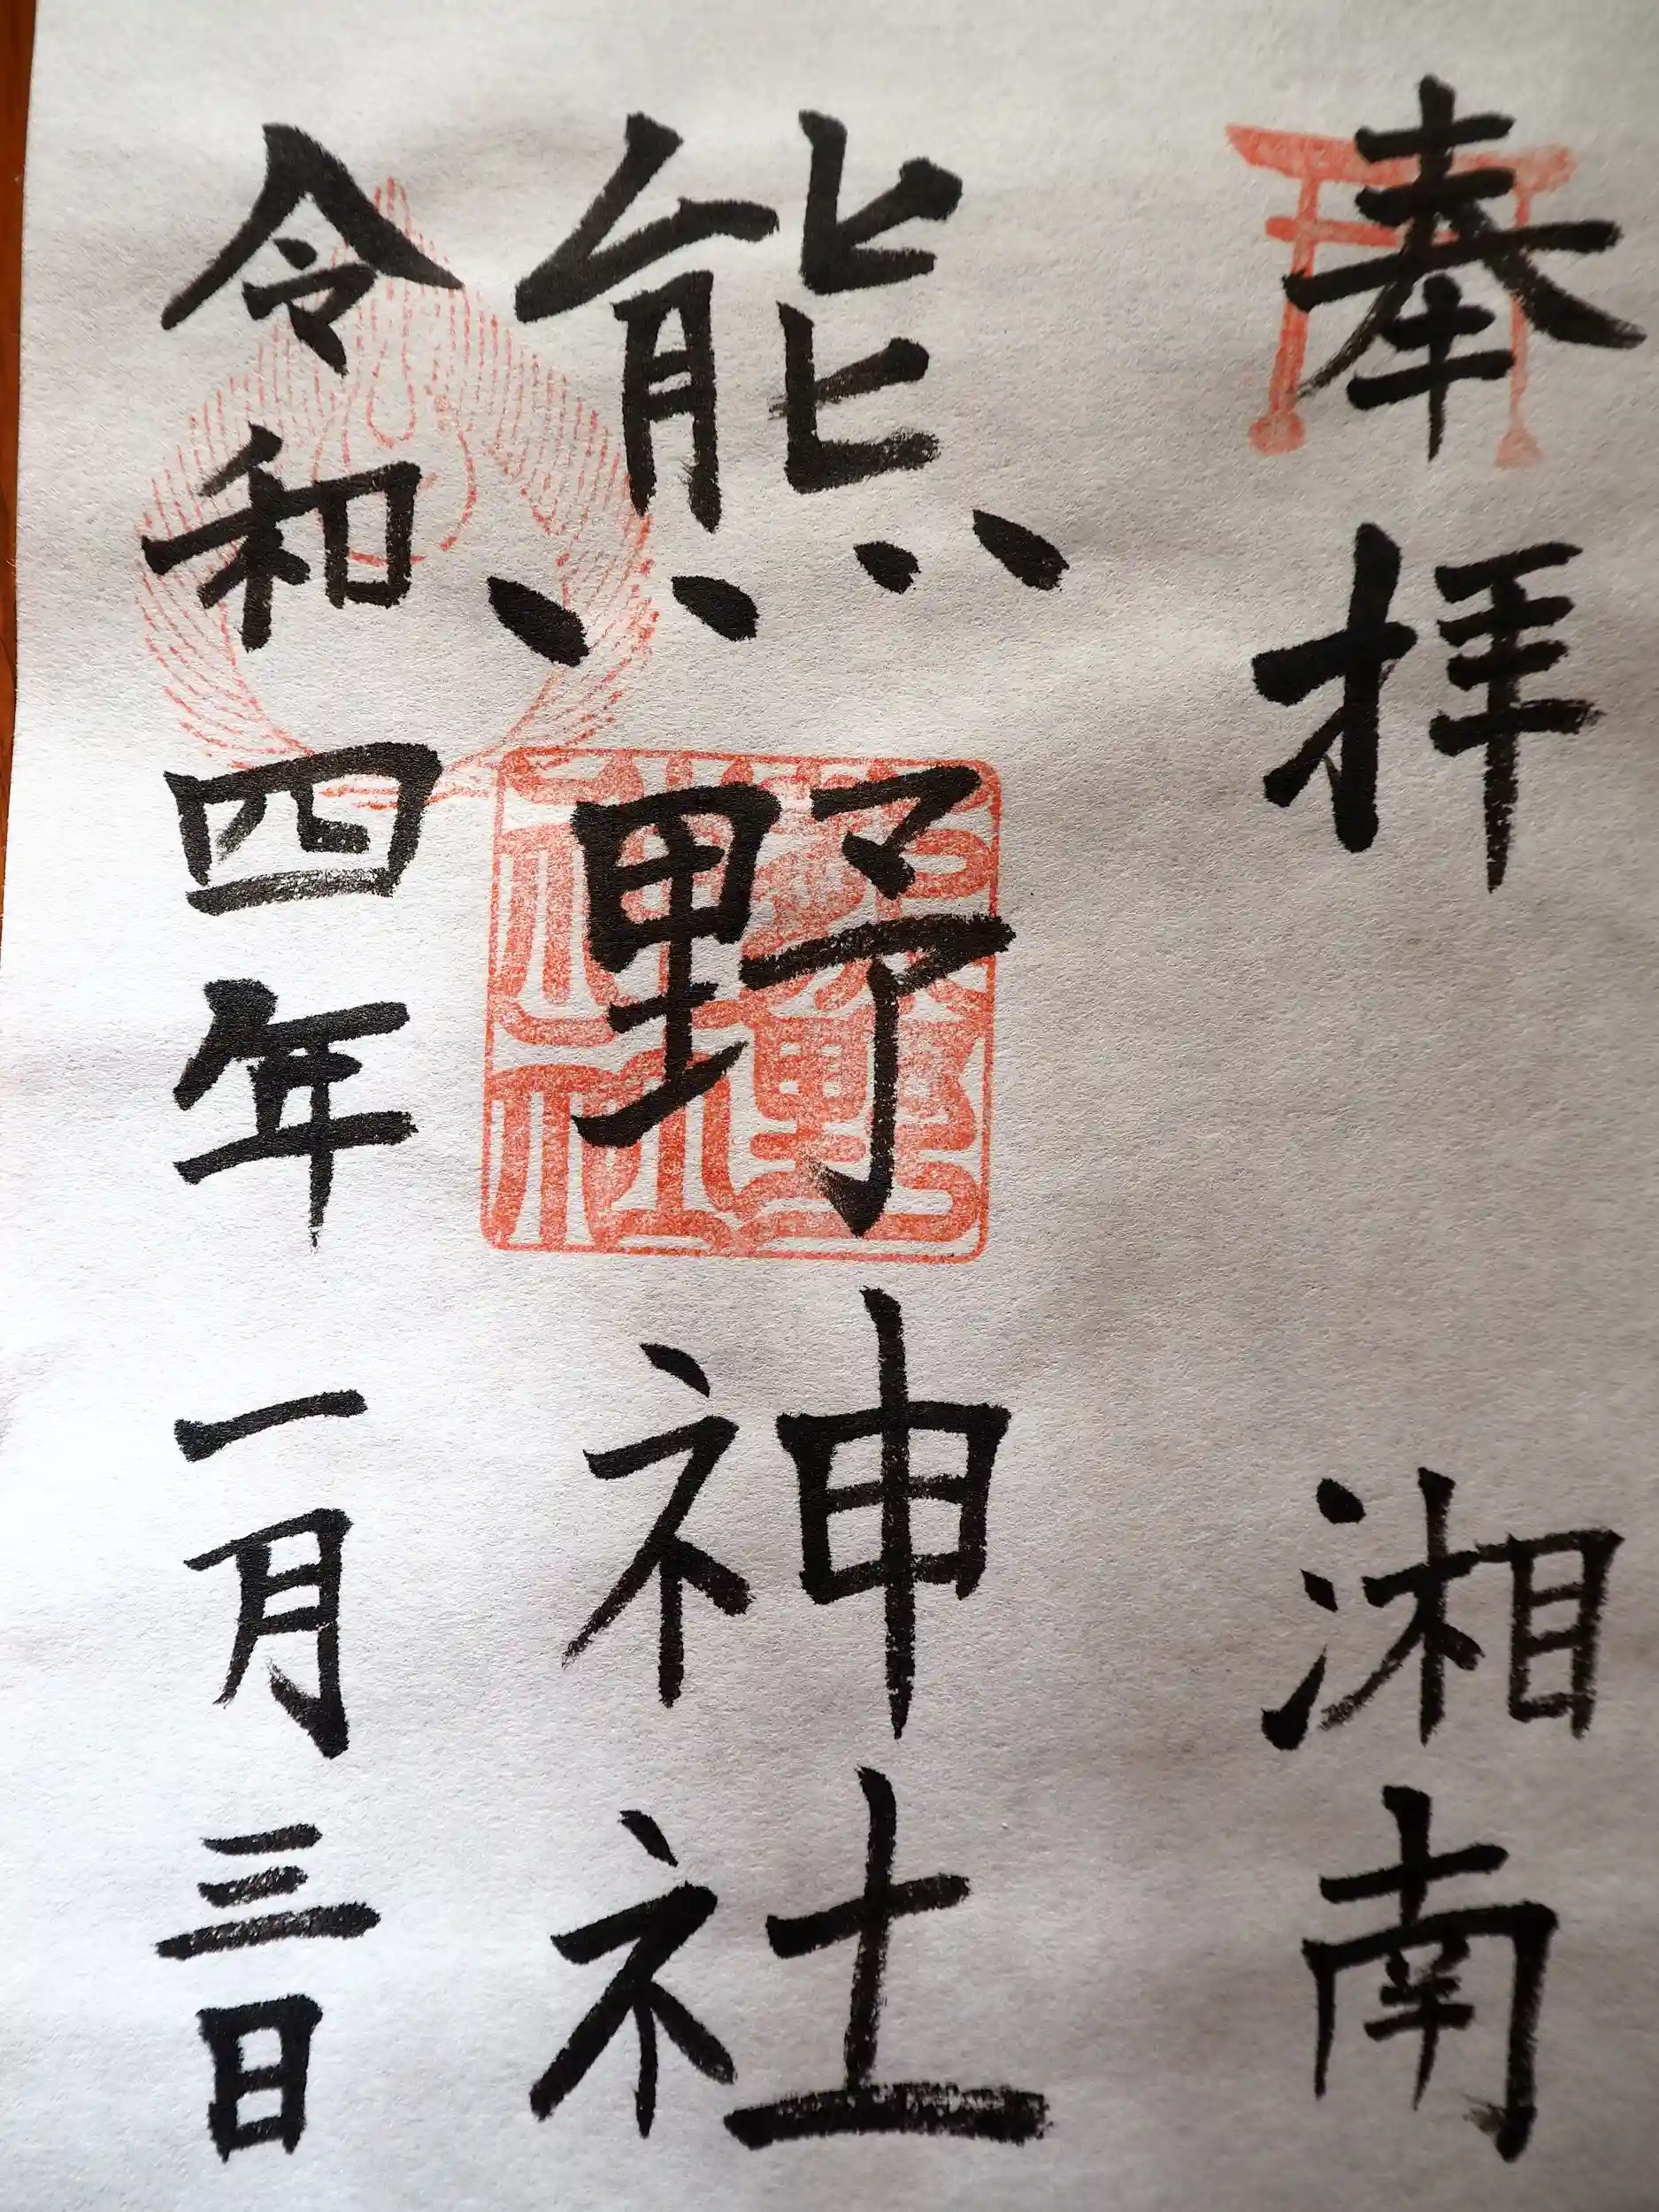 奉拝 湘南
熊野神社
令和四年一月三日
熊野神社